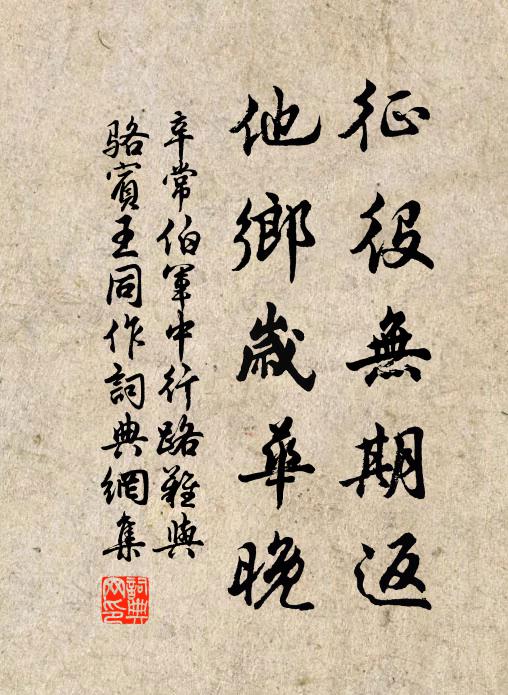 征役無期返
他鄉歲華晚
辛常伯軍中行路難與
駱賓王同作詞典網集
詞典
网印